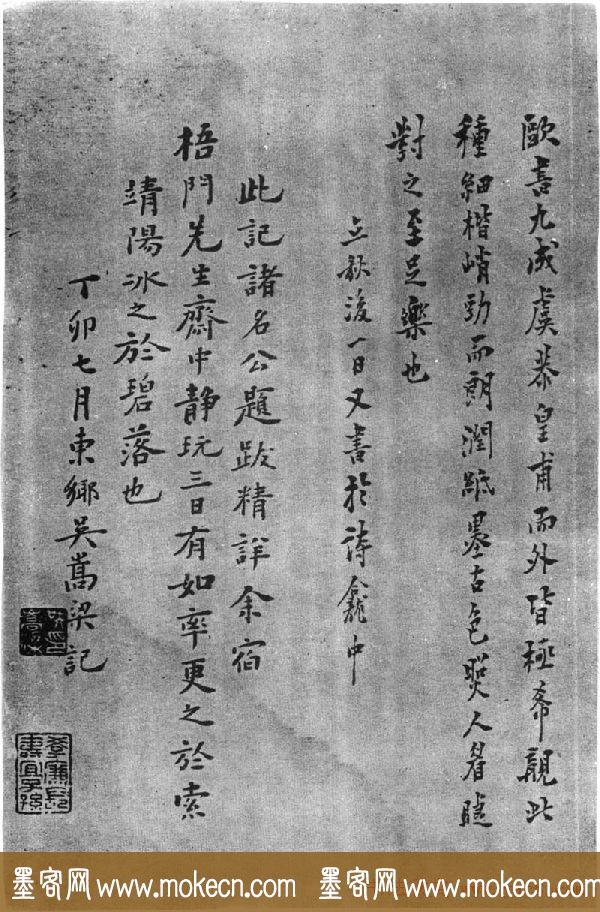 歐書九成虞恭皇甫而外皆極希覯此
種細楷峭勁而朗潤紙墨古色照人眉睫
對之至足樂也
立秋後一日又書於詩龕中
此記諸名公題跋精詳余宿
梧門先生齋中静玩三日有如率更之於索
靖陽冰之於碧落也
丁卯七月東鄉吳嵩梁記
墨客网 www.mokecn.com 墨客网 www.mokecn.com